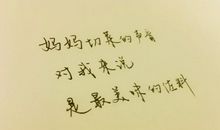 妈妈切菜的声音
对我来说
是最美味的佐料